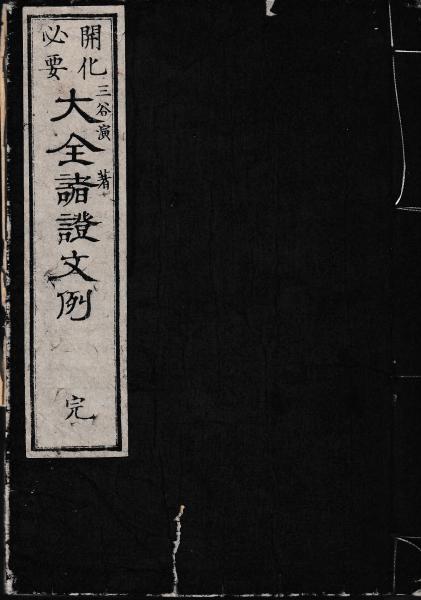 開化
必要
三谷演 著
大全諸證文例
完